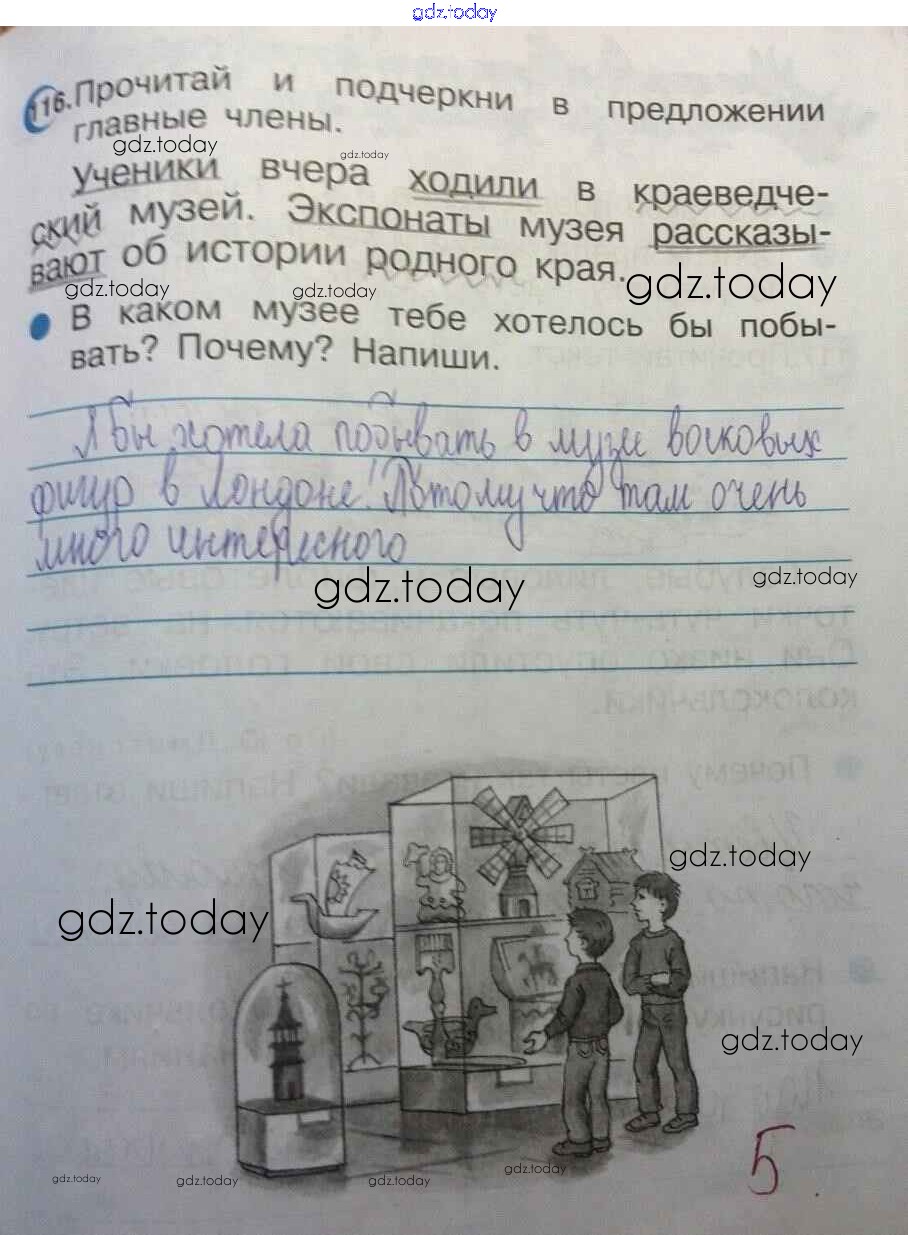 gdz.today
116. Прочитай и подчеркни в предложении
главные члены.
gdz.today
gdz.today
Ученики вчера ходили в краеведче-
ский музей. Экспонаты музея рассказы-
вают об истории родного края.
gdz.today
gdz.today
gdz.today
В каком музее тебе хотелось бы побы-
вать? Почему? Напиши.
Я бы хотела побывать в музеи восковых
фигур в Лондоне! Потому что там очень
много интересного
gdz.today
gdz.today
gdz.today
gdz.today
gdz.today
gdz.today
gdz.today
gdz.today
gdz.today
5